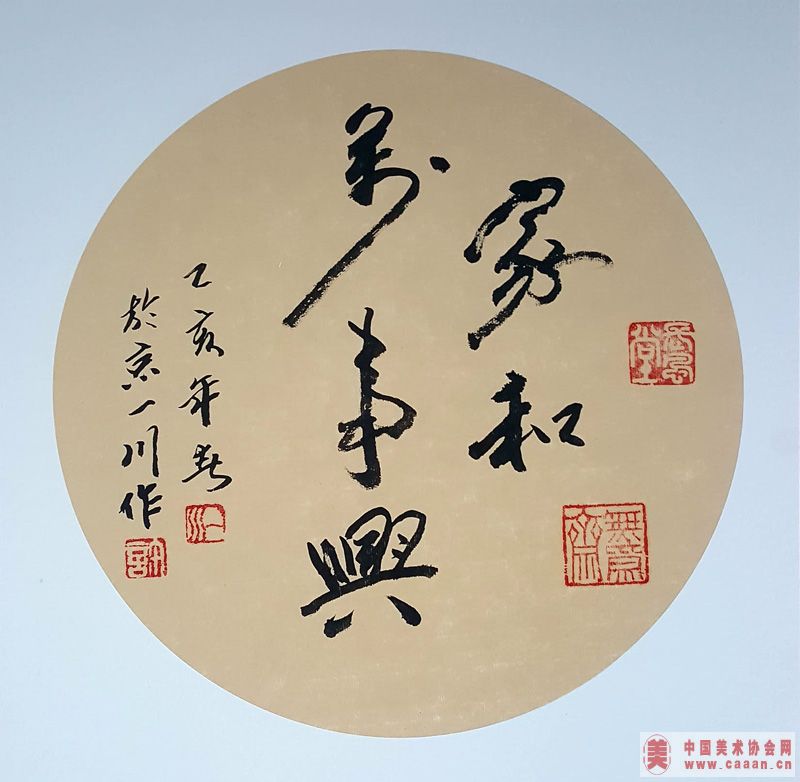 家和
萬事興
乙亥年春
於京一川作
中国美术协会网
www.caaan.cn